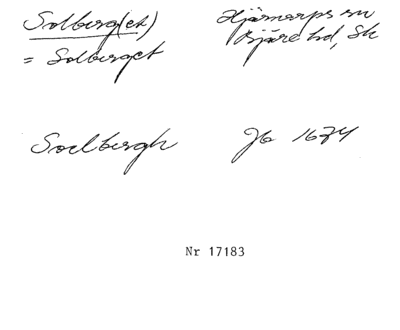 Solberg(et)
= Solberget
Hjärnarps sn
Bjäre hd, Sk
Soelbergh
Jb 1674
Nr 17183